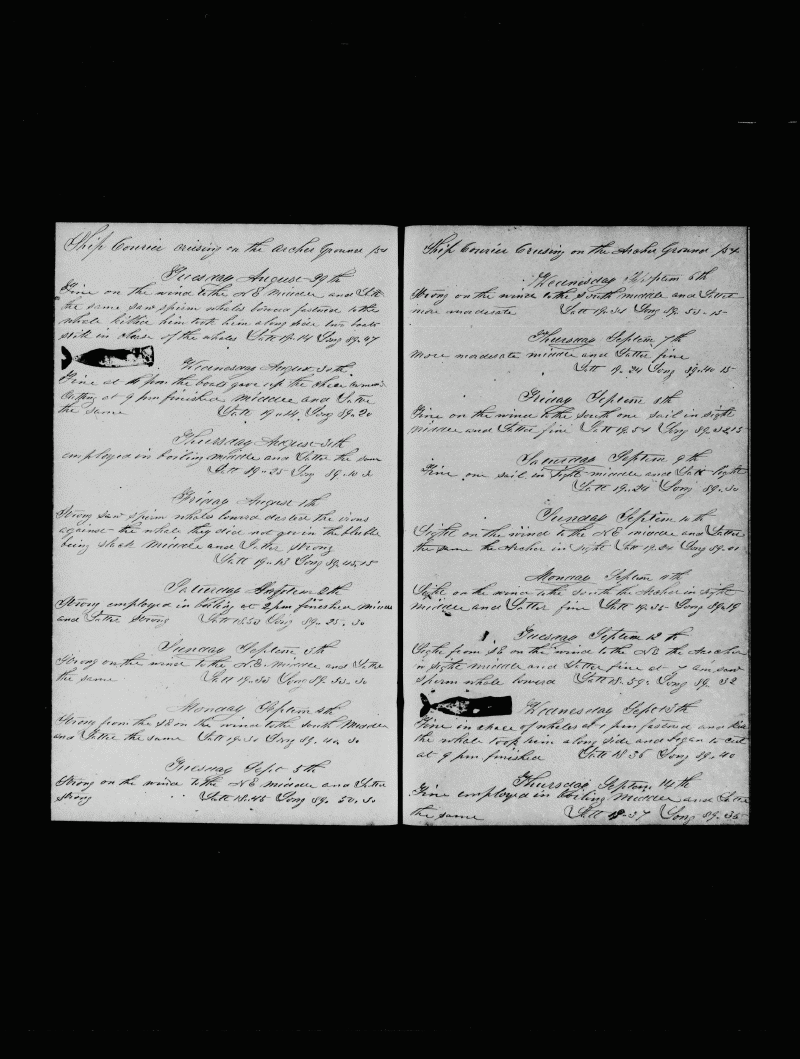 Ship Courier Cruising on the Archer Ground /54
Tuesday August 29th
Fine on the wind to the NE Middle and Latt
the same saw sperm whales lowerd fastned to the
whale killed him took him along side two boats
still in chase of the whales Latt 19-14 Long 89-47
Wednesday August 30th
Fine at pm the boats gave up the chase
Cutting at 9 pm finished Middle and Latter
the same Latt 19-14 Long 89-20
Thursday August 31th
employed in boiling Middle and Latter the same
Latt 19-25 Long 89-10
Friday August 1th
Strong saw sperm whales lowerd darted the irons
against the whale they did not go in the blubber
being slack Middle and Latter strong
Latt 19-13 Long 89-45,15
Saturday Septem 2th
Strong employed in boiling at 2 pm finished Middle
and Latter Strong Latt 18.50 Long 89-25-30
Sunday Septem 3th
Strong on the wind to the N.E. Middle and Latter
the same Latt 19-30 Long 89-30-30
Monday Septem 4th
Strong from the SE on the wind to the South Middle
and Latter the same Latt 19-30 Long 89-40-30
Tuesday Sept 5th
Strong on the wind to the NE Middle and Latter
strong Latt 18-45 Long 89-50-30
Ship Courier Crusing on the Archer Ground /54
Wednesday Septem 6th
Strong on the wind to the South Middle and Latter
more moderate Latt 19-31 Long 89-53-15
Thursday Septem 7th
More moderate middle and Latter fine
Latt 19-24 Long 89-40 15
Friday Septem 8th
Fine on the wind to the South one sail in sight
Middle and Latter fine Latt 19-54 Long 89-32,15
Saturday Septem 9th
Fine one sail in sight middle and Latt light
Latt 19-24 Long 89-30
Sunday Septem 10th
Light on the wind to the NE middle and Latter
the same the Archer in sight Latt 19-24 Long 89-01
Monday Septem 11th
Light on the wind to the South the Archer in sight
Middle and Latter fine Latt 19-35 Long 89-19
Tuesday Septem 12th
Light from SE on the wind to the NE the Archer
in sight Middle and Latter fine at 7 am saw
sperm whale lowerd Latt 18-59 Long 89 32
Wednesday Sept 13th
Fine in chase of whales at 1 pm fastned and
the whale took him along side and began to cut
at 9 pm finished Latt 18 36 Long 89-40
Thursday Septem 14th
Fine employed in boiling Middle and Latter
the same Latt 18-37 Long 89-35